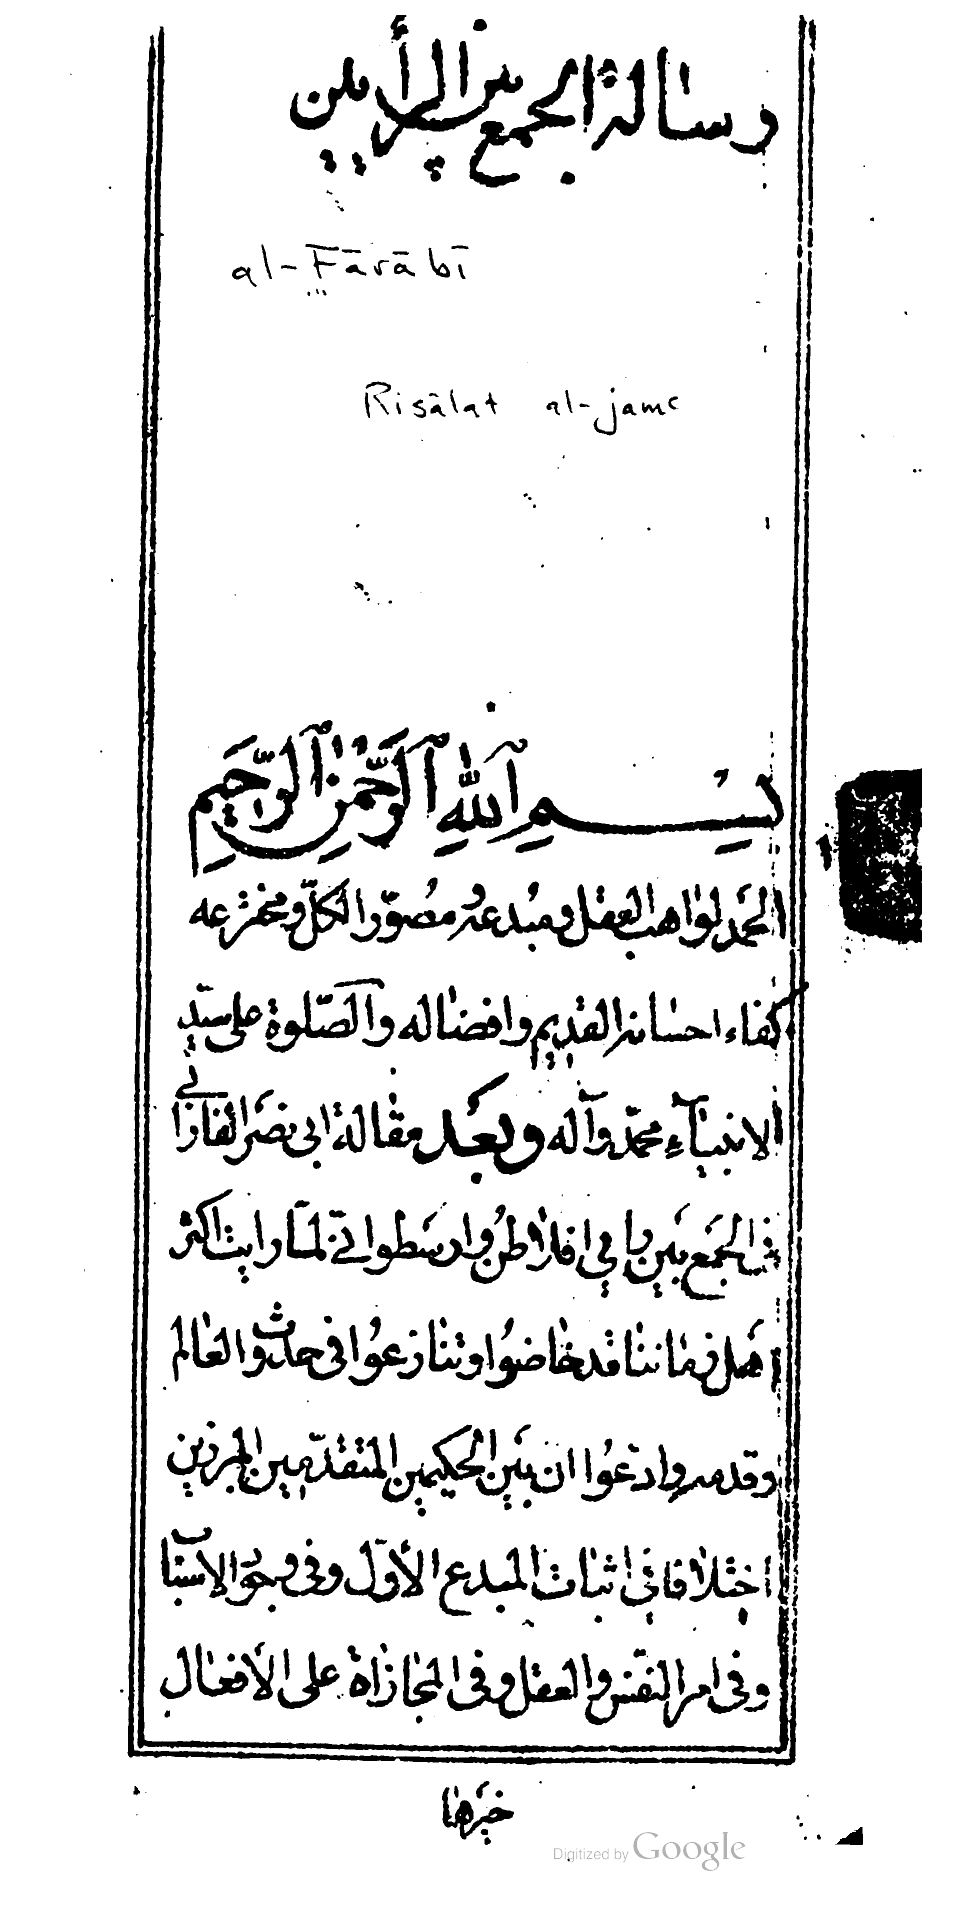 رسالة الجمع بين الرأيين
al-Fārābī
Risālat al-jamᶜ
بِسْمِ اللهِ الرَّحْمٰنِ الرَّحِيمِ
الحمد لواهب العقل ومبدعه ومصوّر الكلّ ومخترعه
كفاء احسانه القديم وافضاله والصّلوة على سيّد
الانبيآء محمّد وآله وبعد مقالة ابى نصر الفارابى
فى الجمع بين رايى افلاطن وارسطو انّى لمّا رايت اكثر
اهل زماننا قد خاضوا وتنازعوا فى حدث العالم
وقدمه وادّعوا ان بين الحكيمين المتقدّمين المبرزين
اختلافا فى اثبات المبدع الاوّل وفى وجود الاسباب
وفى امر النفس والعقل وفى المجازاة على الافعال
خيرها
Digitized by Google